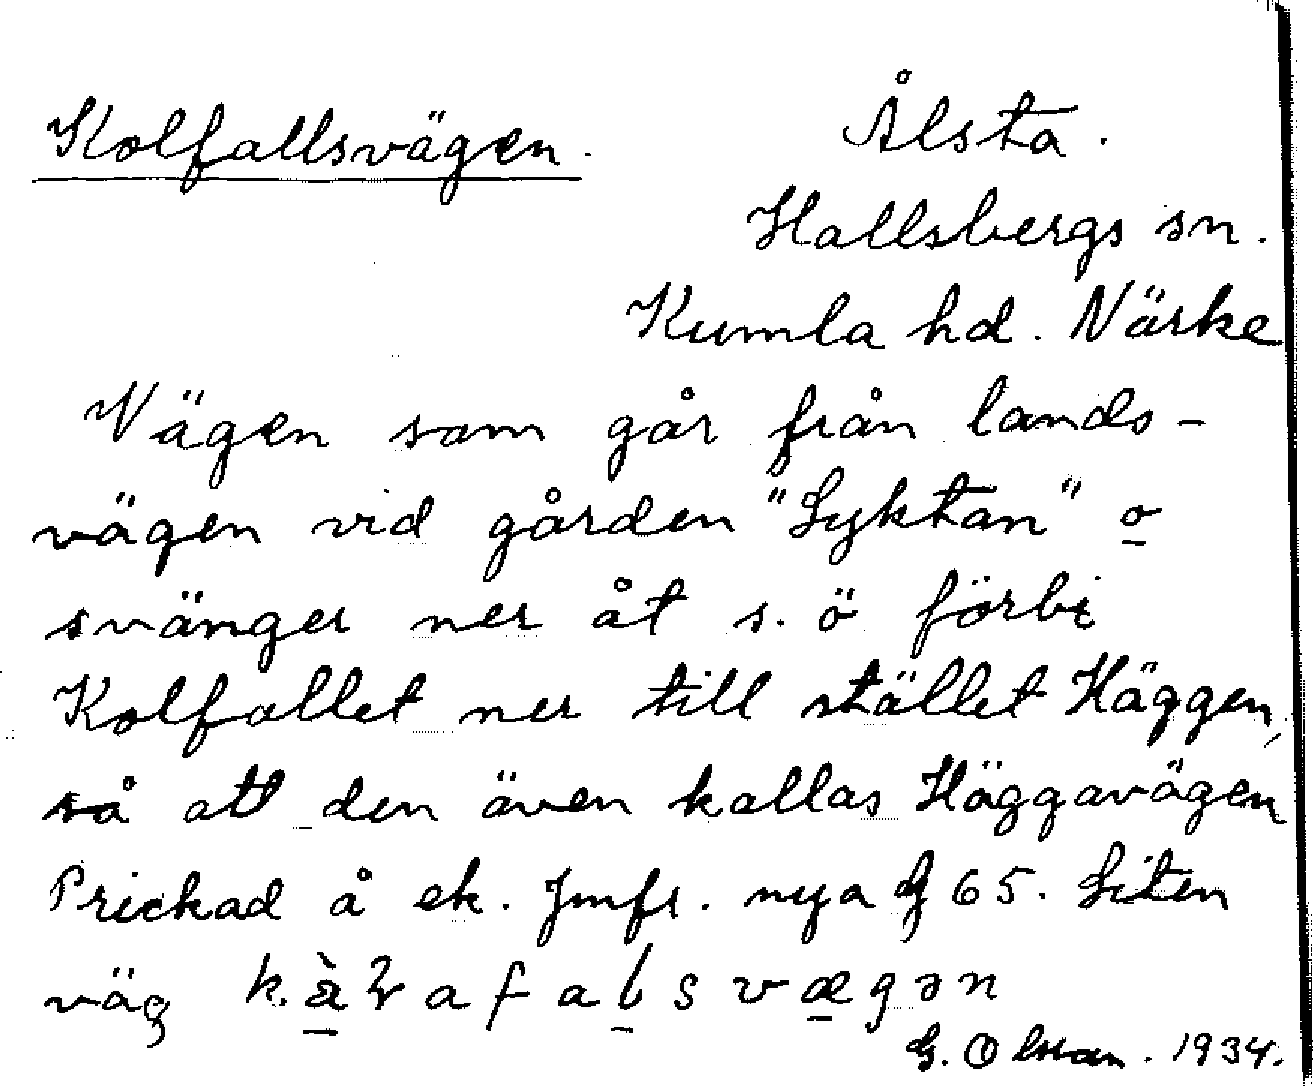 Kolfallsvägen.
Ålsta.
Hallsbergs sn.
Kumla hd. Närke
Vägen som går från lands-
vägen vid gården "Lyktan" o
svänger ner åt s. ö förbi
Kolfallet ner till stället Häggen,
så att den även kallas Häggavägen
Prickad å ek. Jmfr. nya G 65. Liten
väg
G. Olsson. 1934.